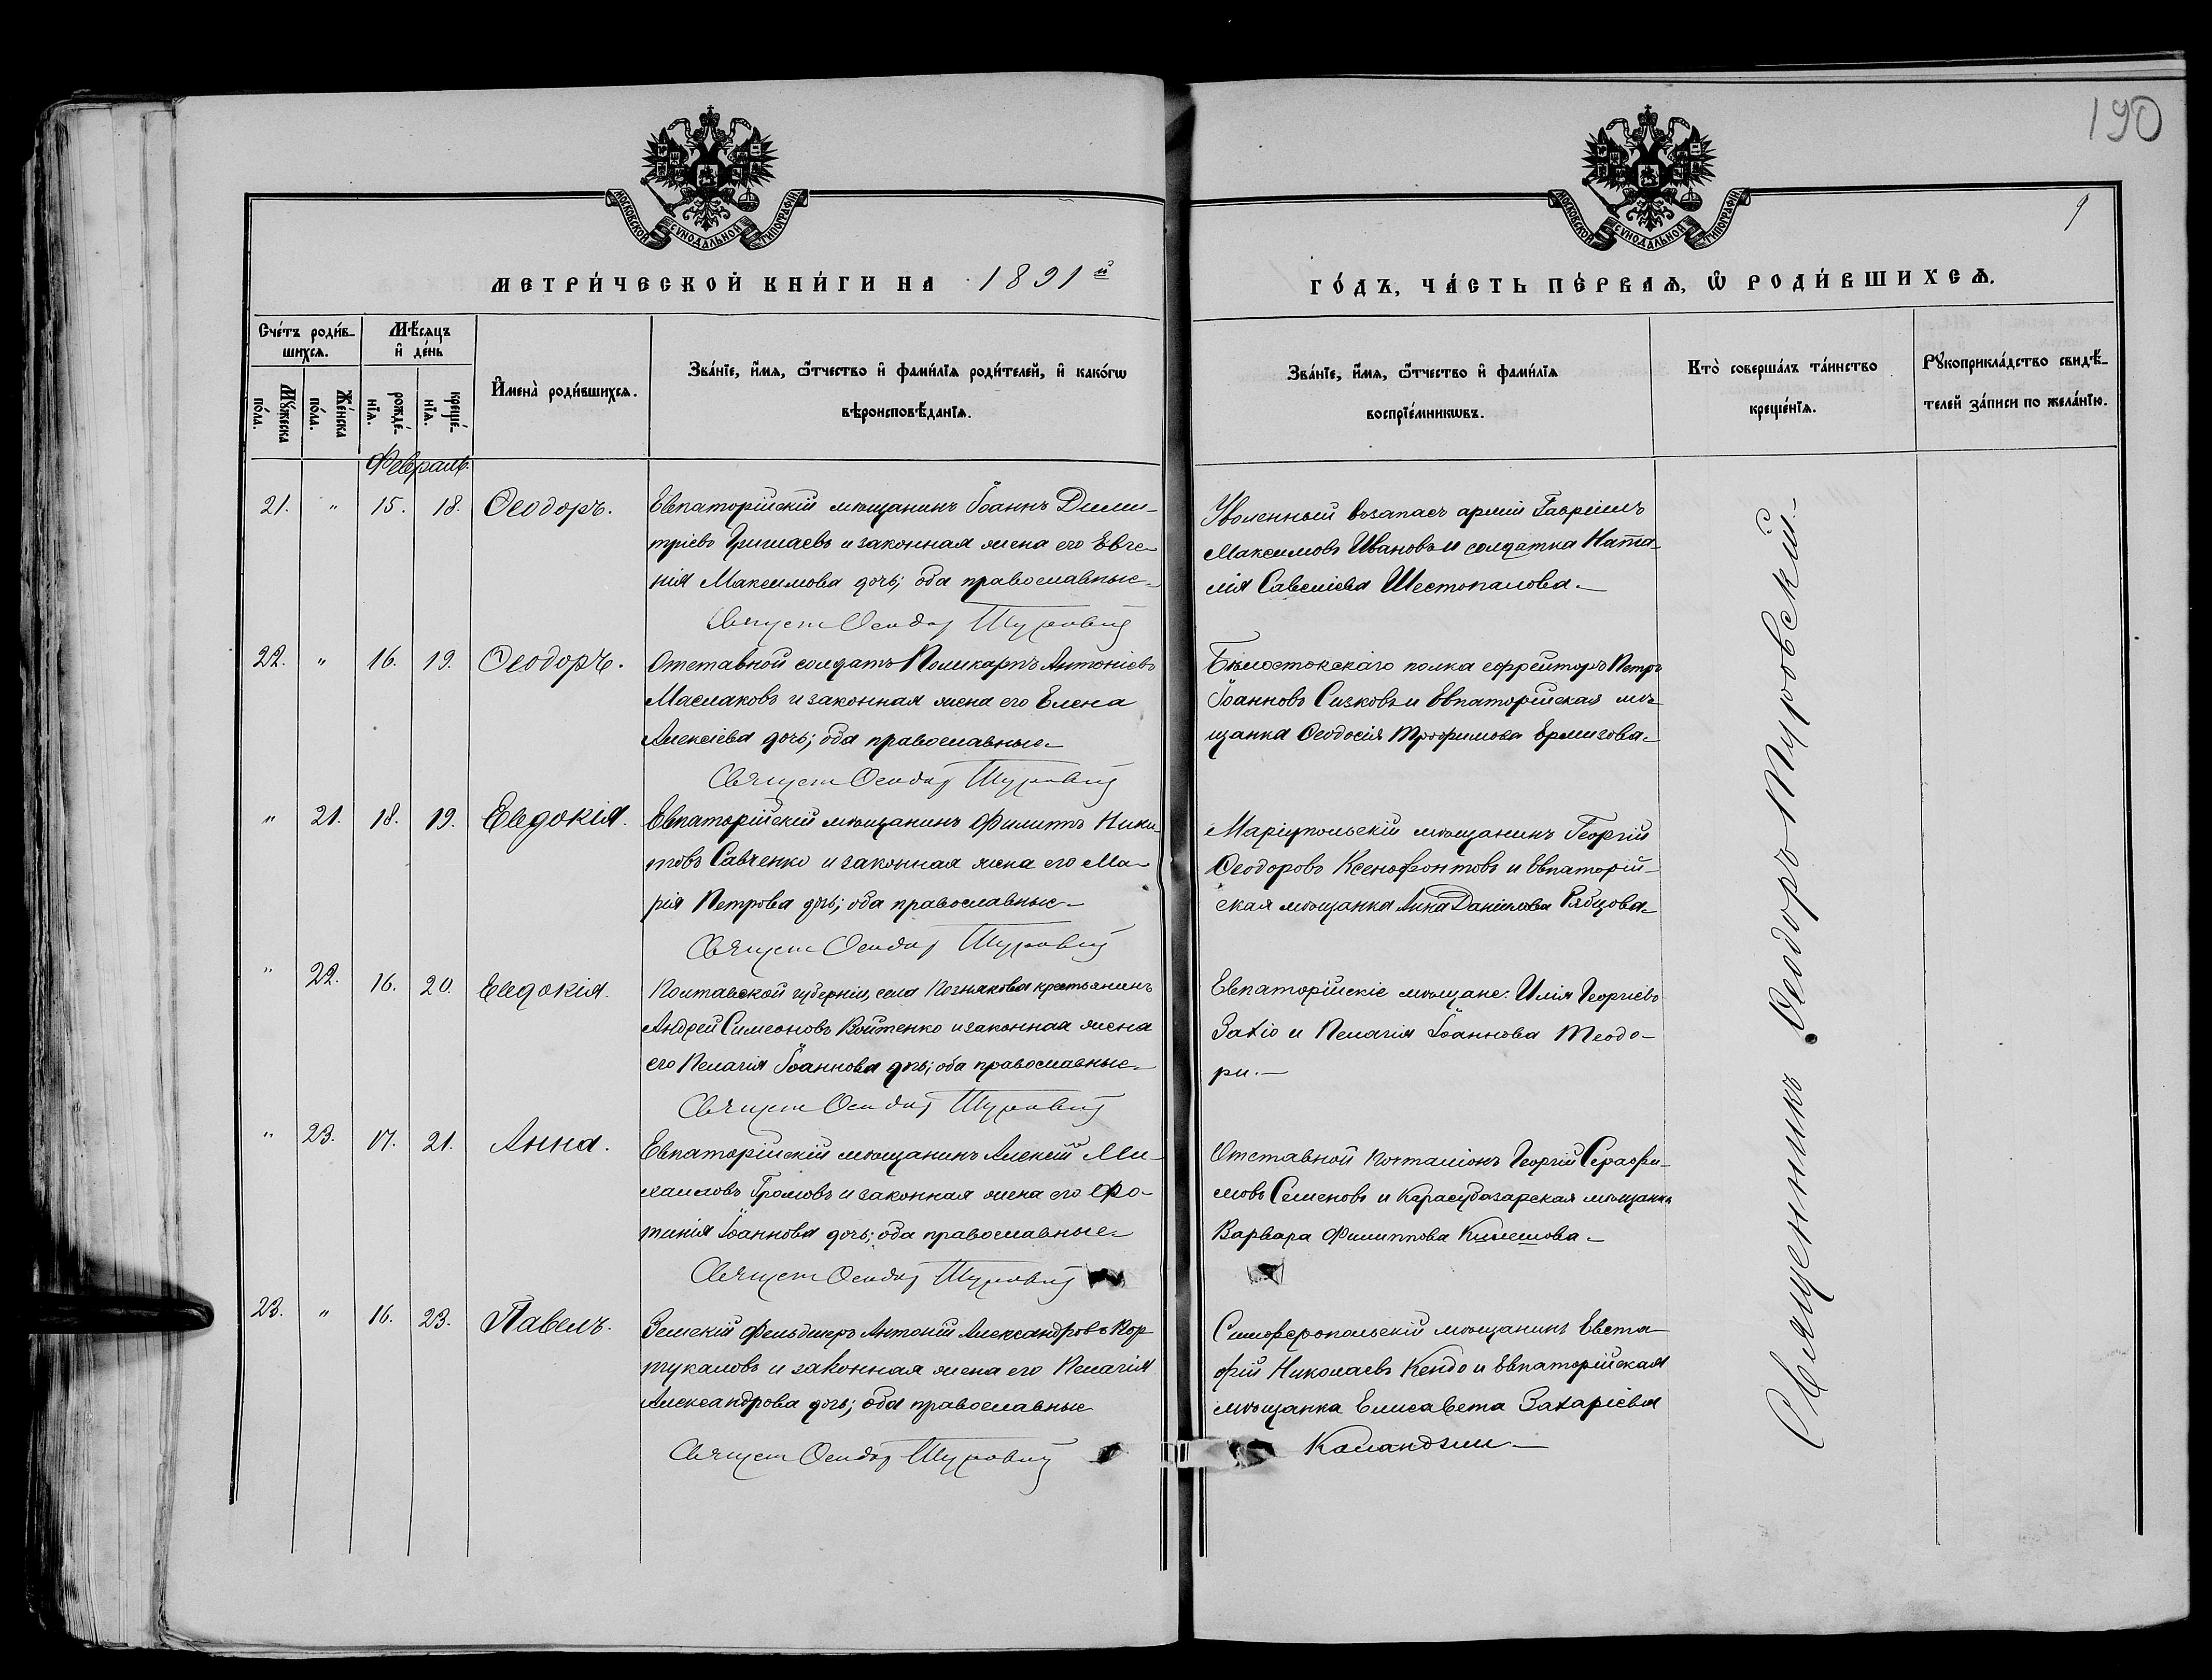 190
МОСКОВСКОЙ СѴНОДАЛЬНОЙ ТИПОГРАФІИ
МОСКОВСКОЙ СѴНОДАЛЬНОЙ ТИПОГРАФІИ
9
МЕТРИ́ЧЕСКОЙ КНИ́ГИ НА 1891й
ГО́ДЪ, ЧА́СТЬ ПЕ́РВАѦ, Ѽ РОДИ́ВШИХСѦ.
Сче́тъ роди́в-
шихсѧ.
Му́жеска по́ла.
Же́нска по́ла.
Мѣ́сяцъ
и де́нь
рожде́-
нїѧ.
креще́-
нїѧ.
И҆мена̀ роди́вшихсѧ.
Зва́нїе, и҆́мѧ, ѻ҆́тчество и҆ фами́лїѧ роди́телей, и҆ како́гѡ
вѣроисповѣ́данїѧ.
Зва́нїе, и҆́мѧ, ѻ҆́тчество и҆ фами́лїѧ
воспрїе́мникѡвъ.
Кто̀ соверша́лъ та́инство
креще́нїѧ.
Рꙋкоприкла́дство свидѣ́-
телей за́писи по жела́нїю.
Февраль.
21. " 15. 18. Ѳеодоръ.
Евпаторійскій мѣщанинъ Іоаннъ Дими-
тріевъ Гришаевъ и законная жена его Евге-
нія Максимова дочь; оба православные
Священ Ѳеодор Шуровій
Уволенный въ запасъ арміи Гавріилъ
Максимовъ Ивановъ и солдатка Ната-
лія Савеліева Шестопалова
22. " 16. 19. Ѳеодоръ.
Отставной солдатъ Поликарпъ Антоніевъ
Маслаковъ и законная жена его Елена
Алексіева дочь; оба православные
Священ Ѳеодор
Бѣлостокскаго полка ефрейторъ Петръ
Іоанновъ Сизковъ и Евпаторійская мѣ-
щанка Ѳеодосія Трофимова Ермизова
" 21. 18. 19. Евдокія.
Евпаторійскій мѣщанинъ Филиппъ Ники-
товъ Савченко и законная жена его Ма-
рія Петрова дочь; оба православные
Священ Ѳеодор
Маріупольскій мѣщанинъ Георгій
Ѳеодоровъ Ксенофонтовъ и Евпаторій-
ская мѣщанка Анна Даніилова Рябцова
" 22. 16. 20. Евдокія.
Полтавской губерніи, села Познякова крестьянинъ
Андрей Симеоновъ Войтенко и законная жена
его Пелагія Іоаннова дочь; оба православные
Священ Ѳеодор
Евпаторійскіе мѣщане: Илія Георгіевъ
Захіо и Пелагія Іоаннова Теодо-
ри.
" 23. 17. 21. Анна.
Евпаторійскій мѣщанинъ Алексій Ми-
хаиловъ Громовъ и законная жена его Фо-
тинія Іоаннова дочь; оба православные
Священ Ѳеодор
Отставной почталіонъ Георгій Серафи-
мовъ Семеновъ и Карасубазарская мѣщанка
Варвара Филиппова
23. " 16. 23. Павелъ.
Земскій фельдшеръ Антоній Александровъ Кор-
тукаловъ и законная жена его Пелагія
Александрова дочь; оба православные
Священ Ѳеодор
Симферопольскій мѣщанинъ Евста-
фій Николаевъ Кендо и Евпаторійская
мѣщанка Елисавета Захаріева
Каландзии
Священникъ Ѳеодоръ